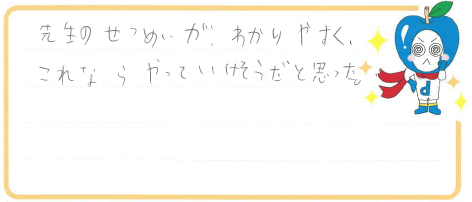 先生のせつめいが、わかりやすく、
これならやっていけそうだと思った。
d